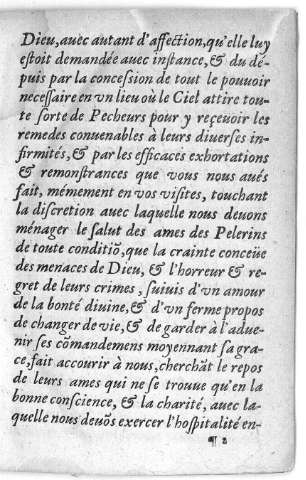 Dieu, auec autant d'affection, qu'elle luy
eſtoit demandée auec inſtance, & du de-
puis par la conceſſion de tout le pouuoir
neceſſaire en vn lieu où le Ciel attire tou-
te ſorte de Pecheurs pour y reçeuoir les
remedes conuenables à leurs diuerſes in-
firmités, & par les efficaces exhortations
& remonſtrances que vous nous aués
fait, mémement en vos viſites, touchant
la diſcretion auec laquelle nous deuons
ménager le ſalut des ames des Pelerins
de toute conditiõ, que la crainte conceüe
des menaces de Dieu, & l'horreur & re-
gret de leurs crimes, ſuiuis d'vn amour
de la bonté diuine, & d'vn ferme propos
de changer de vie, & de garder à l'adue-
nir ſes cõmandemens moyennant ſa gra-
ce, fait accourir à nous, cherchãt le repos
de leurs ames qui ne ſe trouue qu'en la
bonne conſcience, & la charité, auec la-
quelle nous deuõs exercer l'hoſpitalité en-
¶ 2